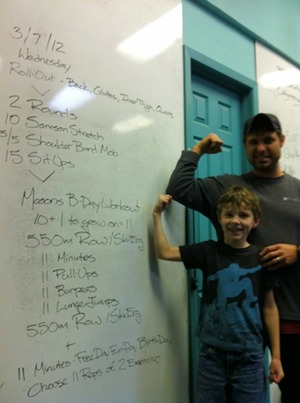 3/7/12
Wednesday
Roll-Out - Back, Glutes, Inner Thigh, Quads
2 Rounds
10 Samson Stretch
5/5 Shoulder Band Mob
15 Sit Ups
Masons B-Day Workout
10 + 1 to grow on = 11
550m Row / Ski Erg
11 Minutes
11 Pull-Ups
11 Burpees
11 Lunge Jumps
550m Row / Ski Erg
+
11 Minutes - Free Day, Fun Day, Birth Day
Choose 11 Reps of 2 Exercises